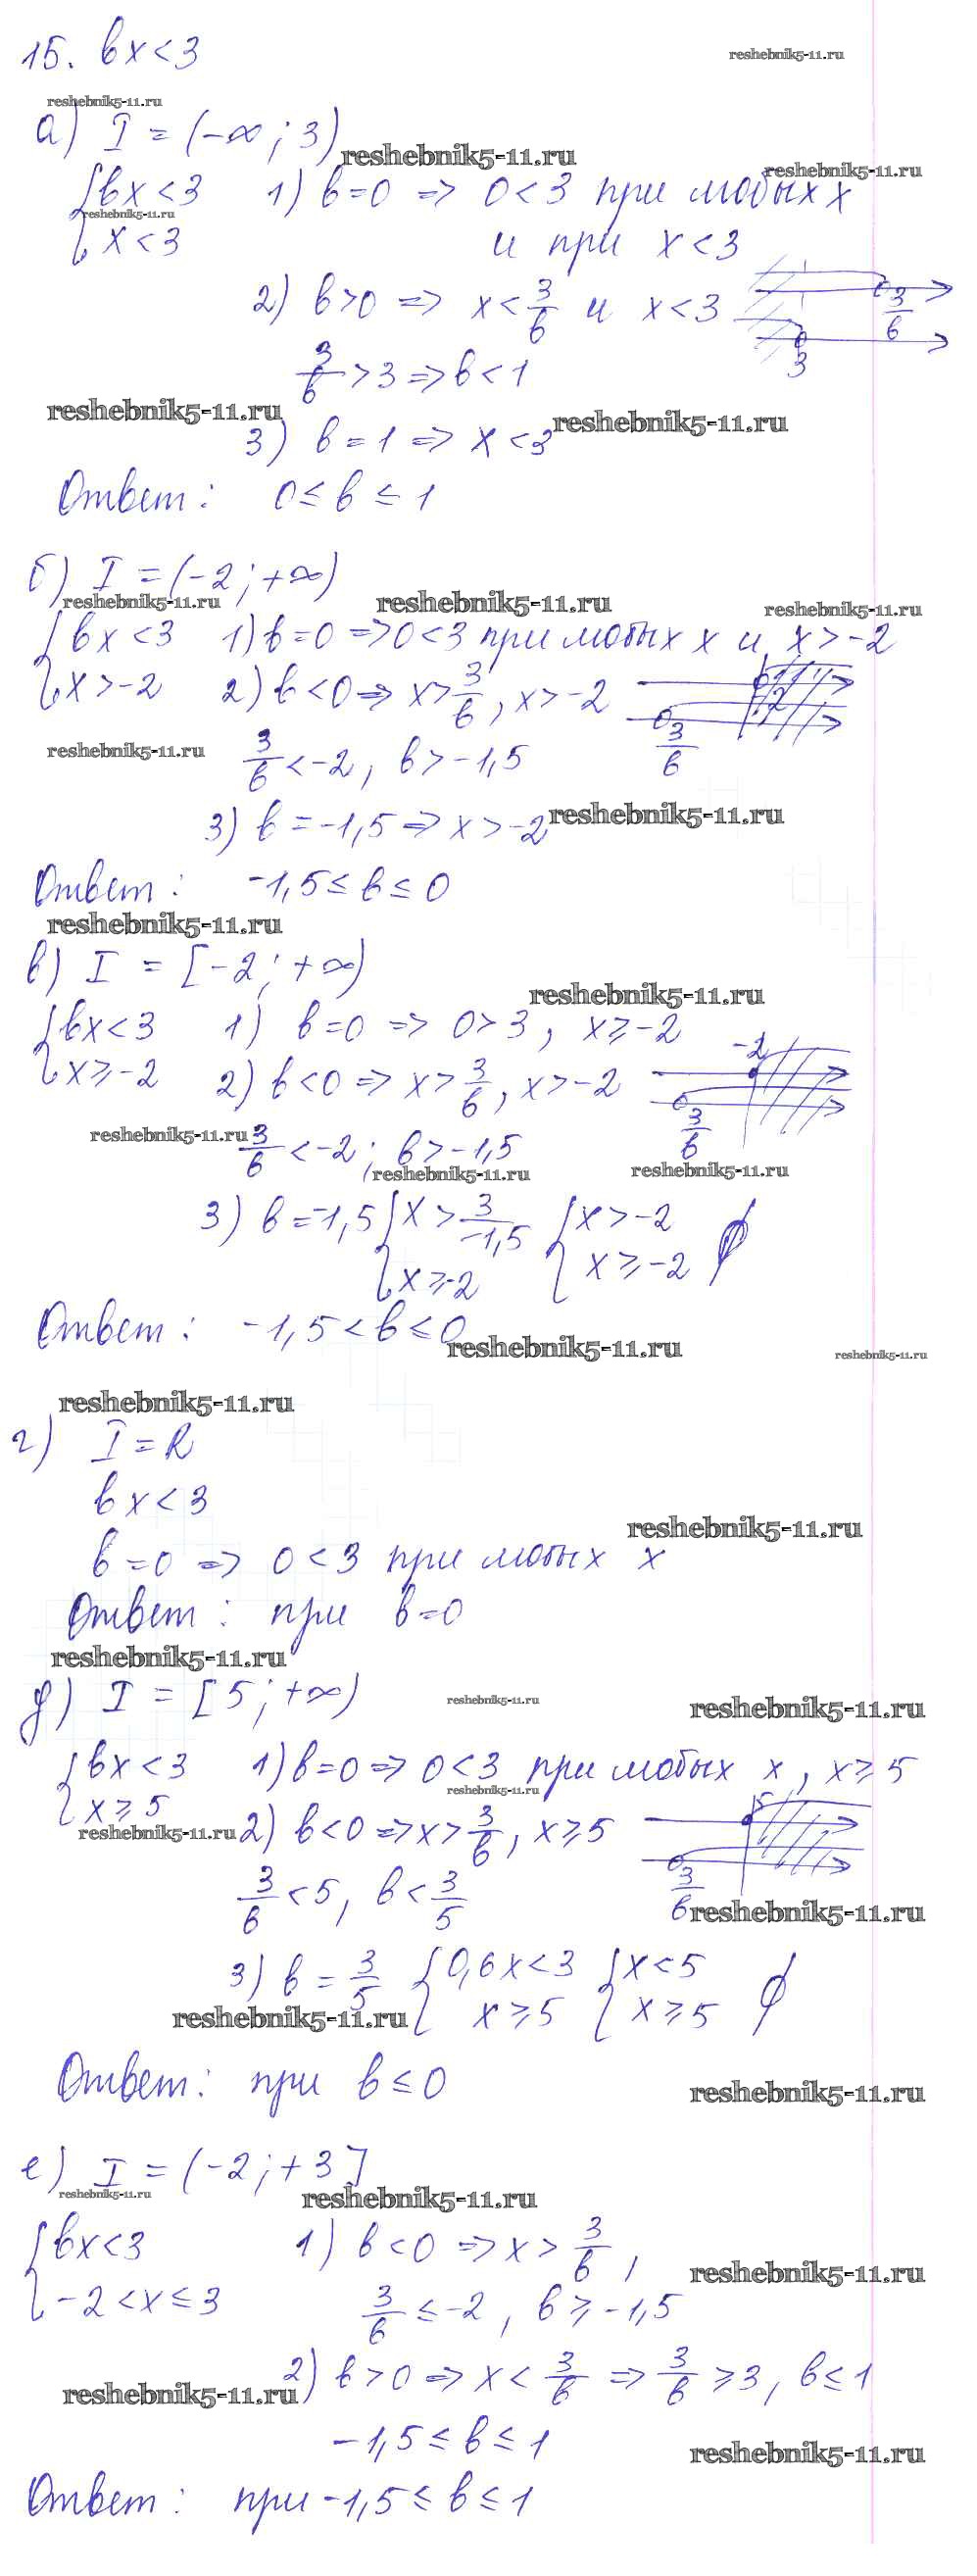 15. bx < 3
reshebnik5-11.ru
reshebnik5-11.ru
а) I = (-∞; 3)
reshebnik5-11.ru
reshebnik5-11.ru
{bx < 3 1) b=0 => 0 < 3 при любых x
reshebnik5-11.ru
x < 3 и при x < 3
2) b > 0 => x < 3/b и x < 3 3/b
3/b > 3 => b < 1 3
reshebnik5-11.ru
reshebnik5-11.ru
3) b = 1 => x < 3
Ответ: 0 ≤ b ≤ 1
б) I = (-2; +∞)
reshebnik5-11.ru
reshebnik5-11.ru
reshebnik5-11.ru
{bx < 3 1) b=0 => 0 < 3 при любых x и x > -2
x > -2 2) b < 0 => x > 3/b, x > -2 -2
3/b
reshebnik5-11.ru
3/b < -2, b > -1,5
3) b = -1,5 => x > -2
reshebnik5-11.ru
Ответ: -1,5 ≤ b ≤ 0
reshebnik5-11.ru
в) I = [-2; +∞)
reshebnik5-11.ru
{bx < 3 1) b=0 => 0 > 3, x ≥ -2
x ≥ -2 2) b < 0 => x > 3/b, x > -2 -2
3/b
reshebnik5-11.ru
3/b < -2; b > -1,5
reshebnik5-11.ru
reshebnik5-11.ru
3) b = -1,5 {x > 3/-1,5 {x > -2
x ≥ -2 x ≥ -2 ∅
Ответ: -1,5 < b ≤ 0
reshebnik5-11.ru
reshebnik5-11.ru
reshebnik5-11.ru
г) I = R
bx < 3
reshebnik5-11.ru
b=0 => 0 < 3 при любых x
Ответ: при b=0
reshebnik5-11.ru
д) I = [5; +∞)
reshebnik5-11.ru
reshebnik5-11.ru
{bx < 3 1) b=0 => 0 < 3 при любых x, x ≥ 5
reshebnik5-11.ru
x ≥ 5 5
reshebnik5-11.ru
2) b < 0 => x > 3/b, x ≥ 5
3/b
3/b < 5, b < 3/5
reshebnik5-11.ru
3) b = 3/5 {0,6x < 3 {x < 5
x ≥ 5 x ≥ 5 ∅
reshebnik5-11.ru
Ответ: при b ≤ 0
reshebnik5-11.ru
е) I = (-2; +3]
reshebnik5-11.ru
reshebnik5-11.ru
{bx < 3 1) b < 0 => x > 3/b,
reshebnik5-11.ru
-2 < x ≤ 3 3/b ≤ -2, b ≥ -1,5
2) b > 0 => x < 3/b => 3/b ≥ 3, b ≤ 1
reshebnik5-11.ru
-1,5 ≤ b ≤ 1
reshebnik5-11.ru
Ответ: при -1,5 ≤ b ≤ 1